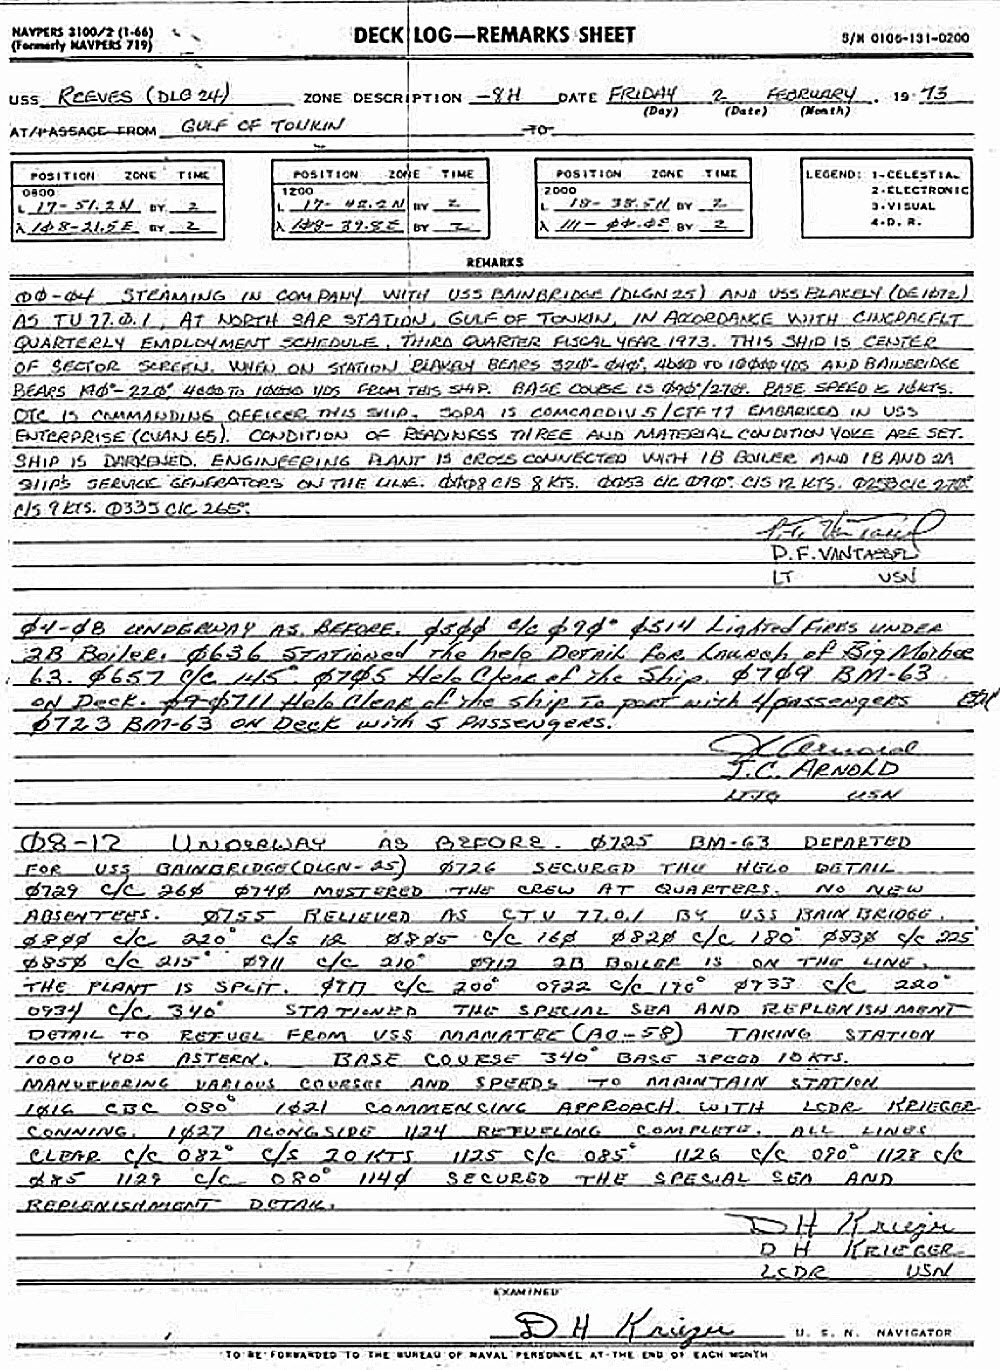 NAVPERS 3100/2 (1-66)
(Formerly NAVPERS 719)
DECK LOG—REMARKS SHEET
S/N 0106-131-0200
USS REEVES (DLG 24) ZONE DESCRIPTION -8H DATE FRIDAY 2 FEBRUARY, 1973
(Day) (Date) (Month)
AT/PASSAGE FROM GULF OF TONKIN TO
POSITION ZONE TIME
0800
L 17-51.2N BY 2
λ 1Ø8-21.5E BY 2
POSITION ZONE TIME
1200
L 17-48.2N BY 2
λ 1Ø8-39.8E BY 2
POSITION ZONE TIME
2000
L 18-38.5N BY 2
λ 111-04.0E BY 2
LEGEND: 1-CELESTIAL
2-ELECTRONIC
3-VISUAL
4-D. R.
REMARKS
ØØ-Ø4 STEAMING IN COMPANY WITH USS BAINBRIDGE (DLGN 25) AND USS BLAKELY (DE 1072)
AS TU 77.Ø.1, AT NORTH SAR STATION, GULF OF TONKIN, IN ACCORDANCE WITH CINCPACFLT
QUARTERLY EMPLOYMENT SCHEDULE, THIRD QUARTER FISCAL YEAR 1973. THIS SHIP IS CENTER
OF SECTOR SCREEN. WHEN ON STATION BLAKELY BEARS 320°-040°, 4000 TO 10000 YDS AND BAINBRIDGE
BEARS 140°-220° 4000 TO 10000 YDS FROM THIS SHIP. BASE COURSE IS 090°/270°. BASE SPEED IS 10 KTS.
OTC IS COMMANDING OFFICER THIS SHIP. SOPA IS COMCARDIV 5/CTF 77 EMBARKED IN USS
ENTERPRISE (CVAN 65). CONDITION OF READINESS THREE AND MATERIAL CONDITION YOKE ARE SET.
SHIP IS DARKENED. ENGINEERING PLANT IS CROSS CONNECTED WITH 1B BOILER AND 1B AND 2A
SHIP'S SERVICE GENERATORS ON THE LINE. C/S 8 KTS. ØØ53 C/C Ø9Ø°. C/S 12 KTS. C/C 270°
C/S 9 KTS. Ø335 C/C 265°.
D.F. VANTASSEL
LT USN
Ø4-Ø8 UNDERWAY AS BEFORE. Ø5ØØ C/C Ø9Ø° Ø514 Lighted Fires UNDER
2B Boiler. Ø636 STATIONED The helo DETAIL for LAunch of Big Mother
63. Ø657 C/C 145°. Ø7Ø5 Helo Clear of the Ship. Ø7Ø9 BM-63
ON Deck. Ø711 Helo Clear of the ship To port with 4 passengers
Ø723 BM-63 ON DECK with 5 PASSENGERS.
J.C. ARNOLD
LTJG USN
Ø8-12 UNDERWAY AS BEFORE. Ø725 BM-63 DEPARTED
FOR USS BAINBRIDGE (DLGN-25) Ø726 SECURED THE HELO DETAIL
Ø729 C/C 26Ø Ø74Ø MUSTERED THE CREW AT QUARTERS. NO NEW
ABSENTEES. Ø755 RELIEVED AS CTU 77.0.1 BY USS BAINBRIDGE.
Ø8ØØ C/C 220° C/S 12 Ø8Ø5 C/C 16Ø Ø82Ø C/C 180° Ø83Ø C/C 225°
Ø85Ø C/C 215° Ø911 C/C 210° Ø912 2B BOILER IS ON THE LINE.
THE PLANT IS SPLIT. Ø917 C/C 200° 0922 C/C 190° Ø933 C/C 220°
0934 C/C 340° STATIONED THE SPECIAL SEA AND REPLENISHMENT
DETAIL TO REFUEL FROM USS MANATEE (AO-58) TAKING STATION
1000 YDS ASTERN. BASE COURSE 340° BASE SPEED 10 KTS.
MANUEVERING VARIOUS COURSES AND SPEEDS TO MAINTAIN STATION
1Ø16 CBC 080° 1Ø21 COMMENCING APPROACH WITH LCDR KRIEGER
CONNING. 1Ø27 ALONGSIDE 1124 REFUELING COMPLETE. ALL LINES
CLEAR C/C 082° C/S 20 KTS 1125 C/C 085° 1126 C/C 090° 1128 C/C
Ø85 1129 C/C 080° 114Ø SECURED THE SPECIAL SEA AND
REPLENISHMENT DETAIL.
D H Krieger
D H KRIEGER
LCDR USN
EXAMINED
D H Krieger U. S. N. NAVIGATOR
TO BE FORWARDED TO THE BUREAU OF NAVAL PERSONNEL AT THE END OF EACH MONTH